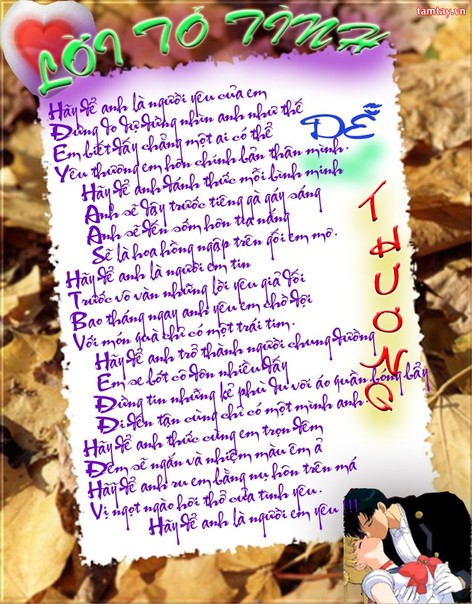 tamtay.vn
LỜI TỎ TÌNH
DỄ
THƯƠNG
Hãy để anh là người yêu của em
Đừng do dự đừng nhìn anh như thế
Em biết đấy chẳng một ai có thể
Yêu thương em hơn chính bản thân mình.
Hãy để anh đánh thức mỗi bình minh
Anh sẽ dậy trước tiếng gà gáy sáng
Anh sẽ đến sớm hơn tia nắng
Sẽ là hoa hồng ngập trên gối em mơ.
Hãy để anh là người em tin
Trước vô vàn những lời yêu giả dối
Bao tháng ngay anh yêu em chờ đợi
Với món quà chỉ có một trái tim.
Hãy để anh trở thành người chung đường
Em sẽ bớt cô đơn nhiều đấy
Đừng tin những kẻ phù du với áo quần bóng bẩy
Đi đến tận cùng chỉ có một mình anh.
Hãy để anh thức cùng em trọn đêm
Đêm sẽ ngắn và nhiệm màu êm ả
Hãy để anh ru em bằng nụ hôn trên má
Vị ngọt ngào hơi thở của tình yêu.
Hãy để anh là người em yêu !!!